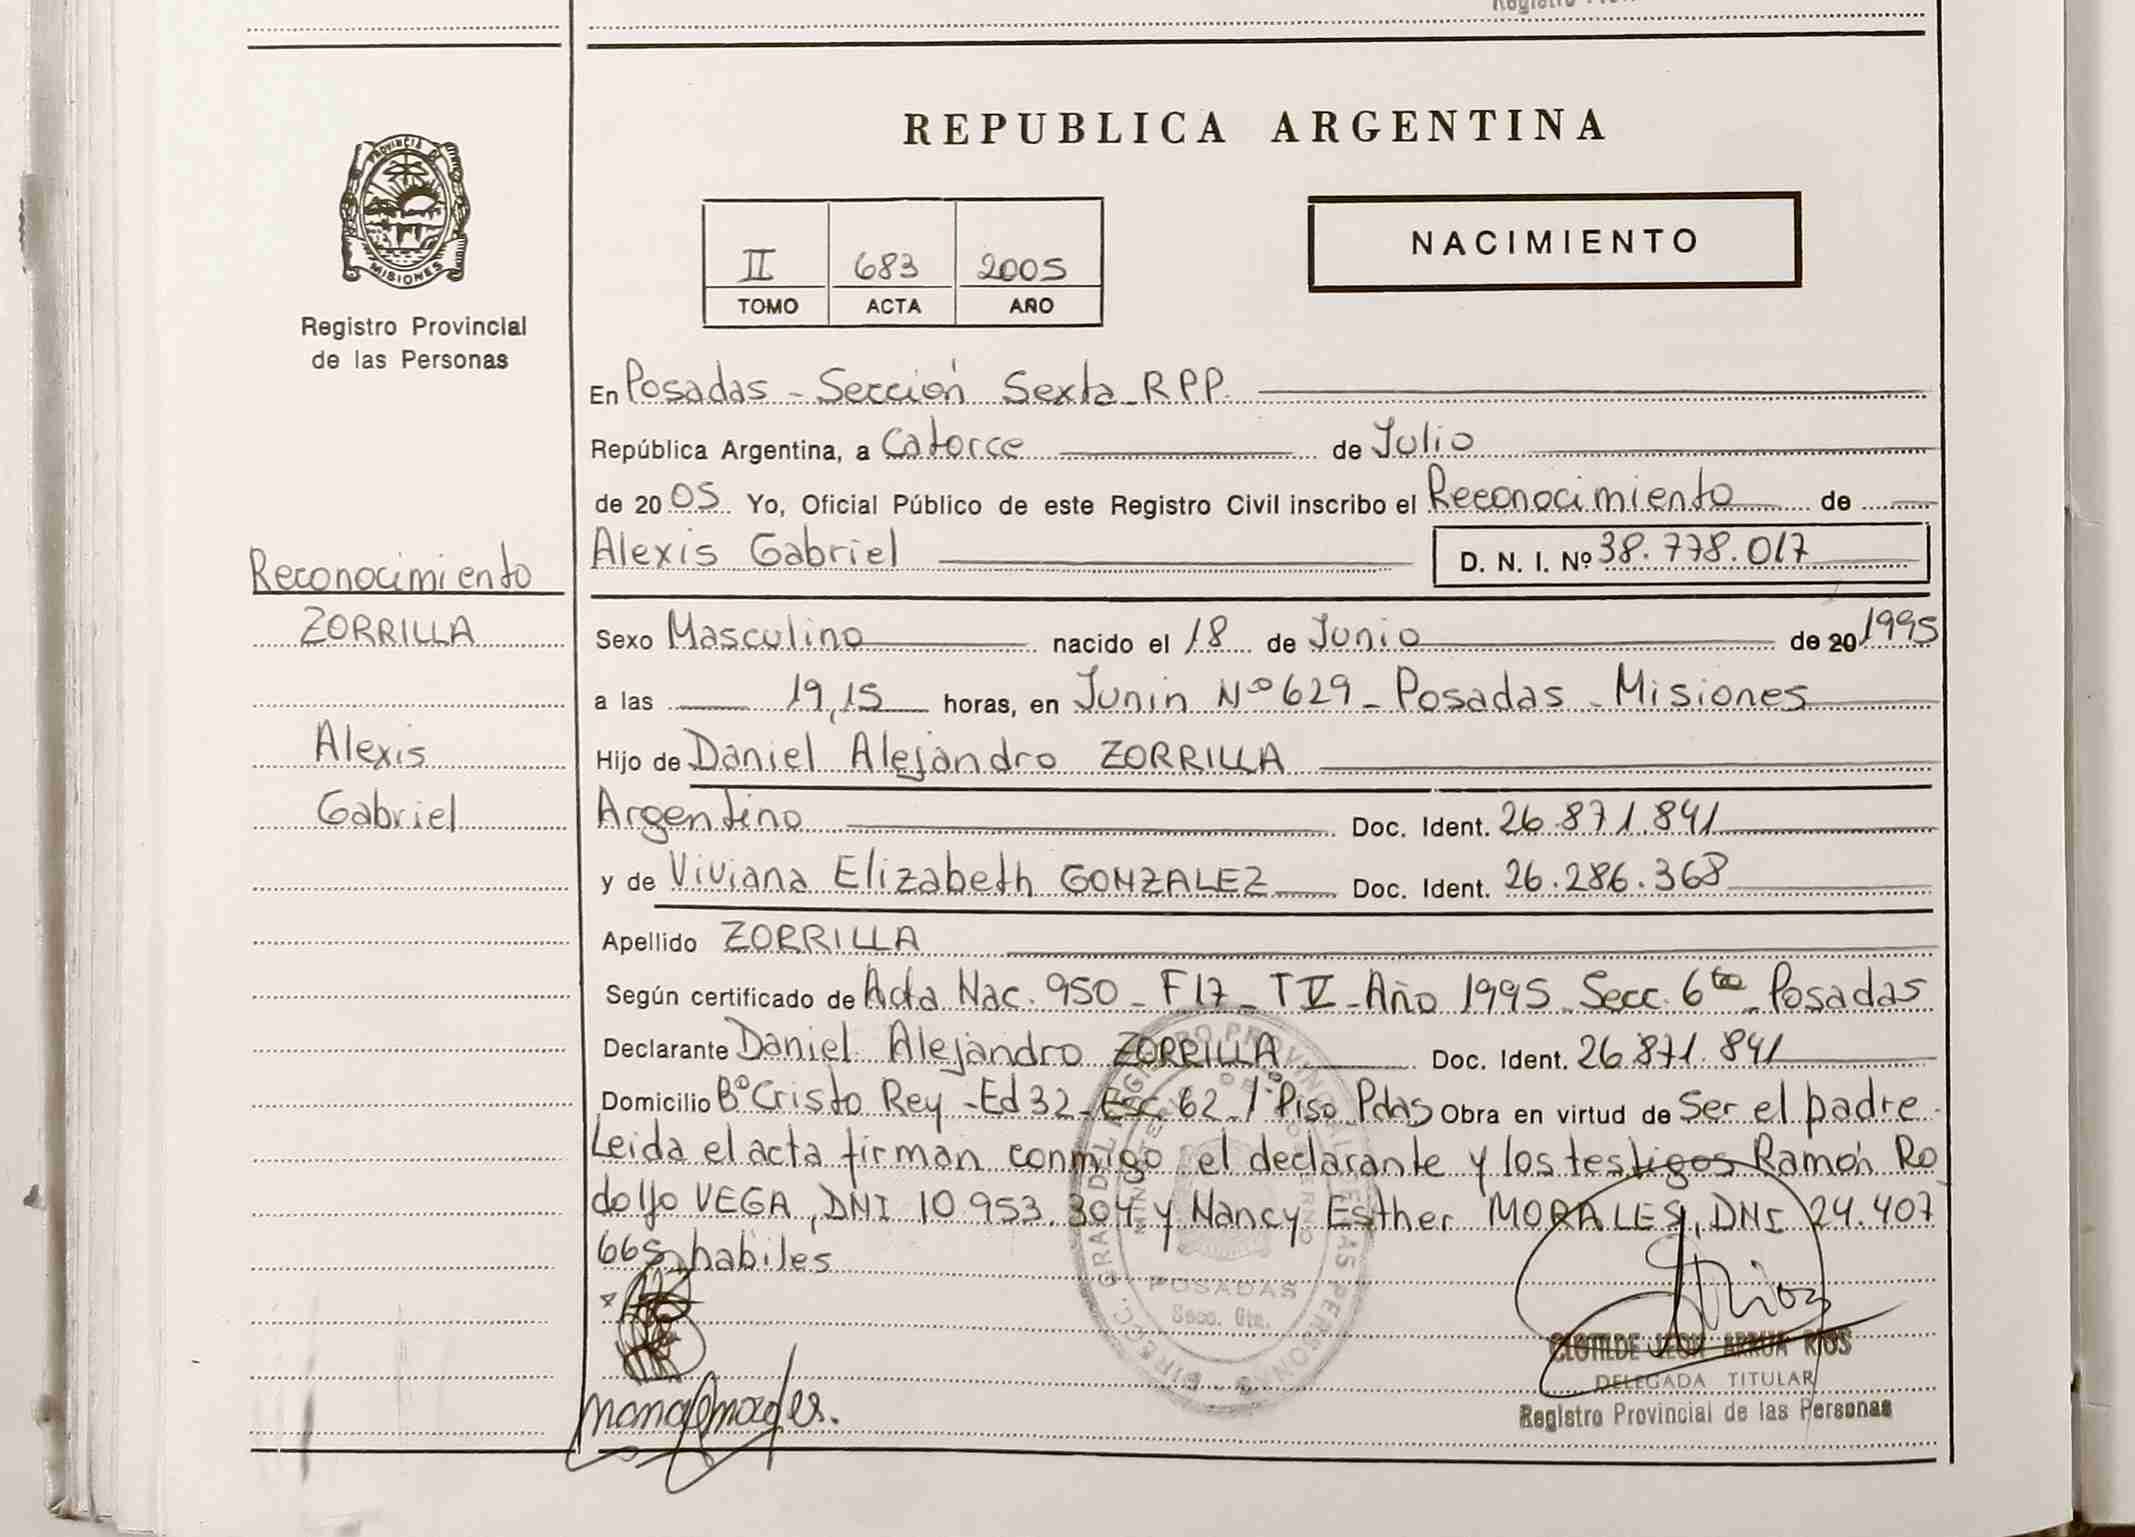 REPUBLICA ARGENTINA
PROVINCIA DE
MISIONES
Registro Provincial
de las Personas
II 683 2005
TOMO ACTA AÑO
NACIMIENTO
En Posadas - Sección Sexta - RPP.
República Argentina, a Catorce de Julio
de 2005. Yo, Oficial Público de este Registro Civil inscribo el Reconocimiento de
Alexis Gabriel D. N. I. Nº 38.778.017
Reconocimiento
ZORRILLA
Alexis
Gabriel
Sexo Masculino nacido el 18 de Junio de 20 1995
a las 19,15 horas, en Junin Nº 629 - Posadas - Misiones
Hijo de Daniel Alejandro ZORRILLA
Argentino Doc. Ident. 26.871.841
y de Viviana Elizabeth GONZALEZ Doc. Ident. 26.286.368
Apellido ZORRILLA
Según certificado de Acta Nac. 950 - F 17 - T V - Año 1995 - Secc. 6ta - Posadas
Declarante Daniel Alejandro ZORRILLA Doc. Ident. 26.871.841
Domicilio Bº Cristo Rey - Ed 32 - Esc 62 - 1º Piso Pdas Obra en virtud de ser el padre.
Leida el acta firman conmigo el declarante y los testigos Ramón Ro
dolfo VEGA, DNI 10.953.304 y Nancy Esther MORALES, DNI 24.407
665, habiles
DIREC. GRAL. DEL REGISTRO PROVINCIAL DE LAS PERSONAS
MINISTERIO DE GOBIERNO
POSADAS
Secc. 6ta.
CLOTILDE LEON ARRUA RIOS
DELEGADA TITULAR
Registro Provincial de las Personas